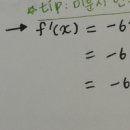 ☆tip: 미분시
→ f'(x) = -6
= -6
= -6